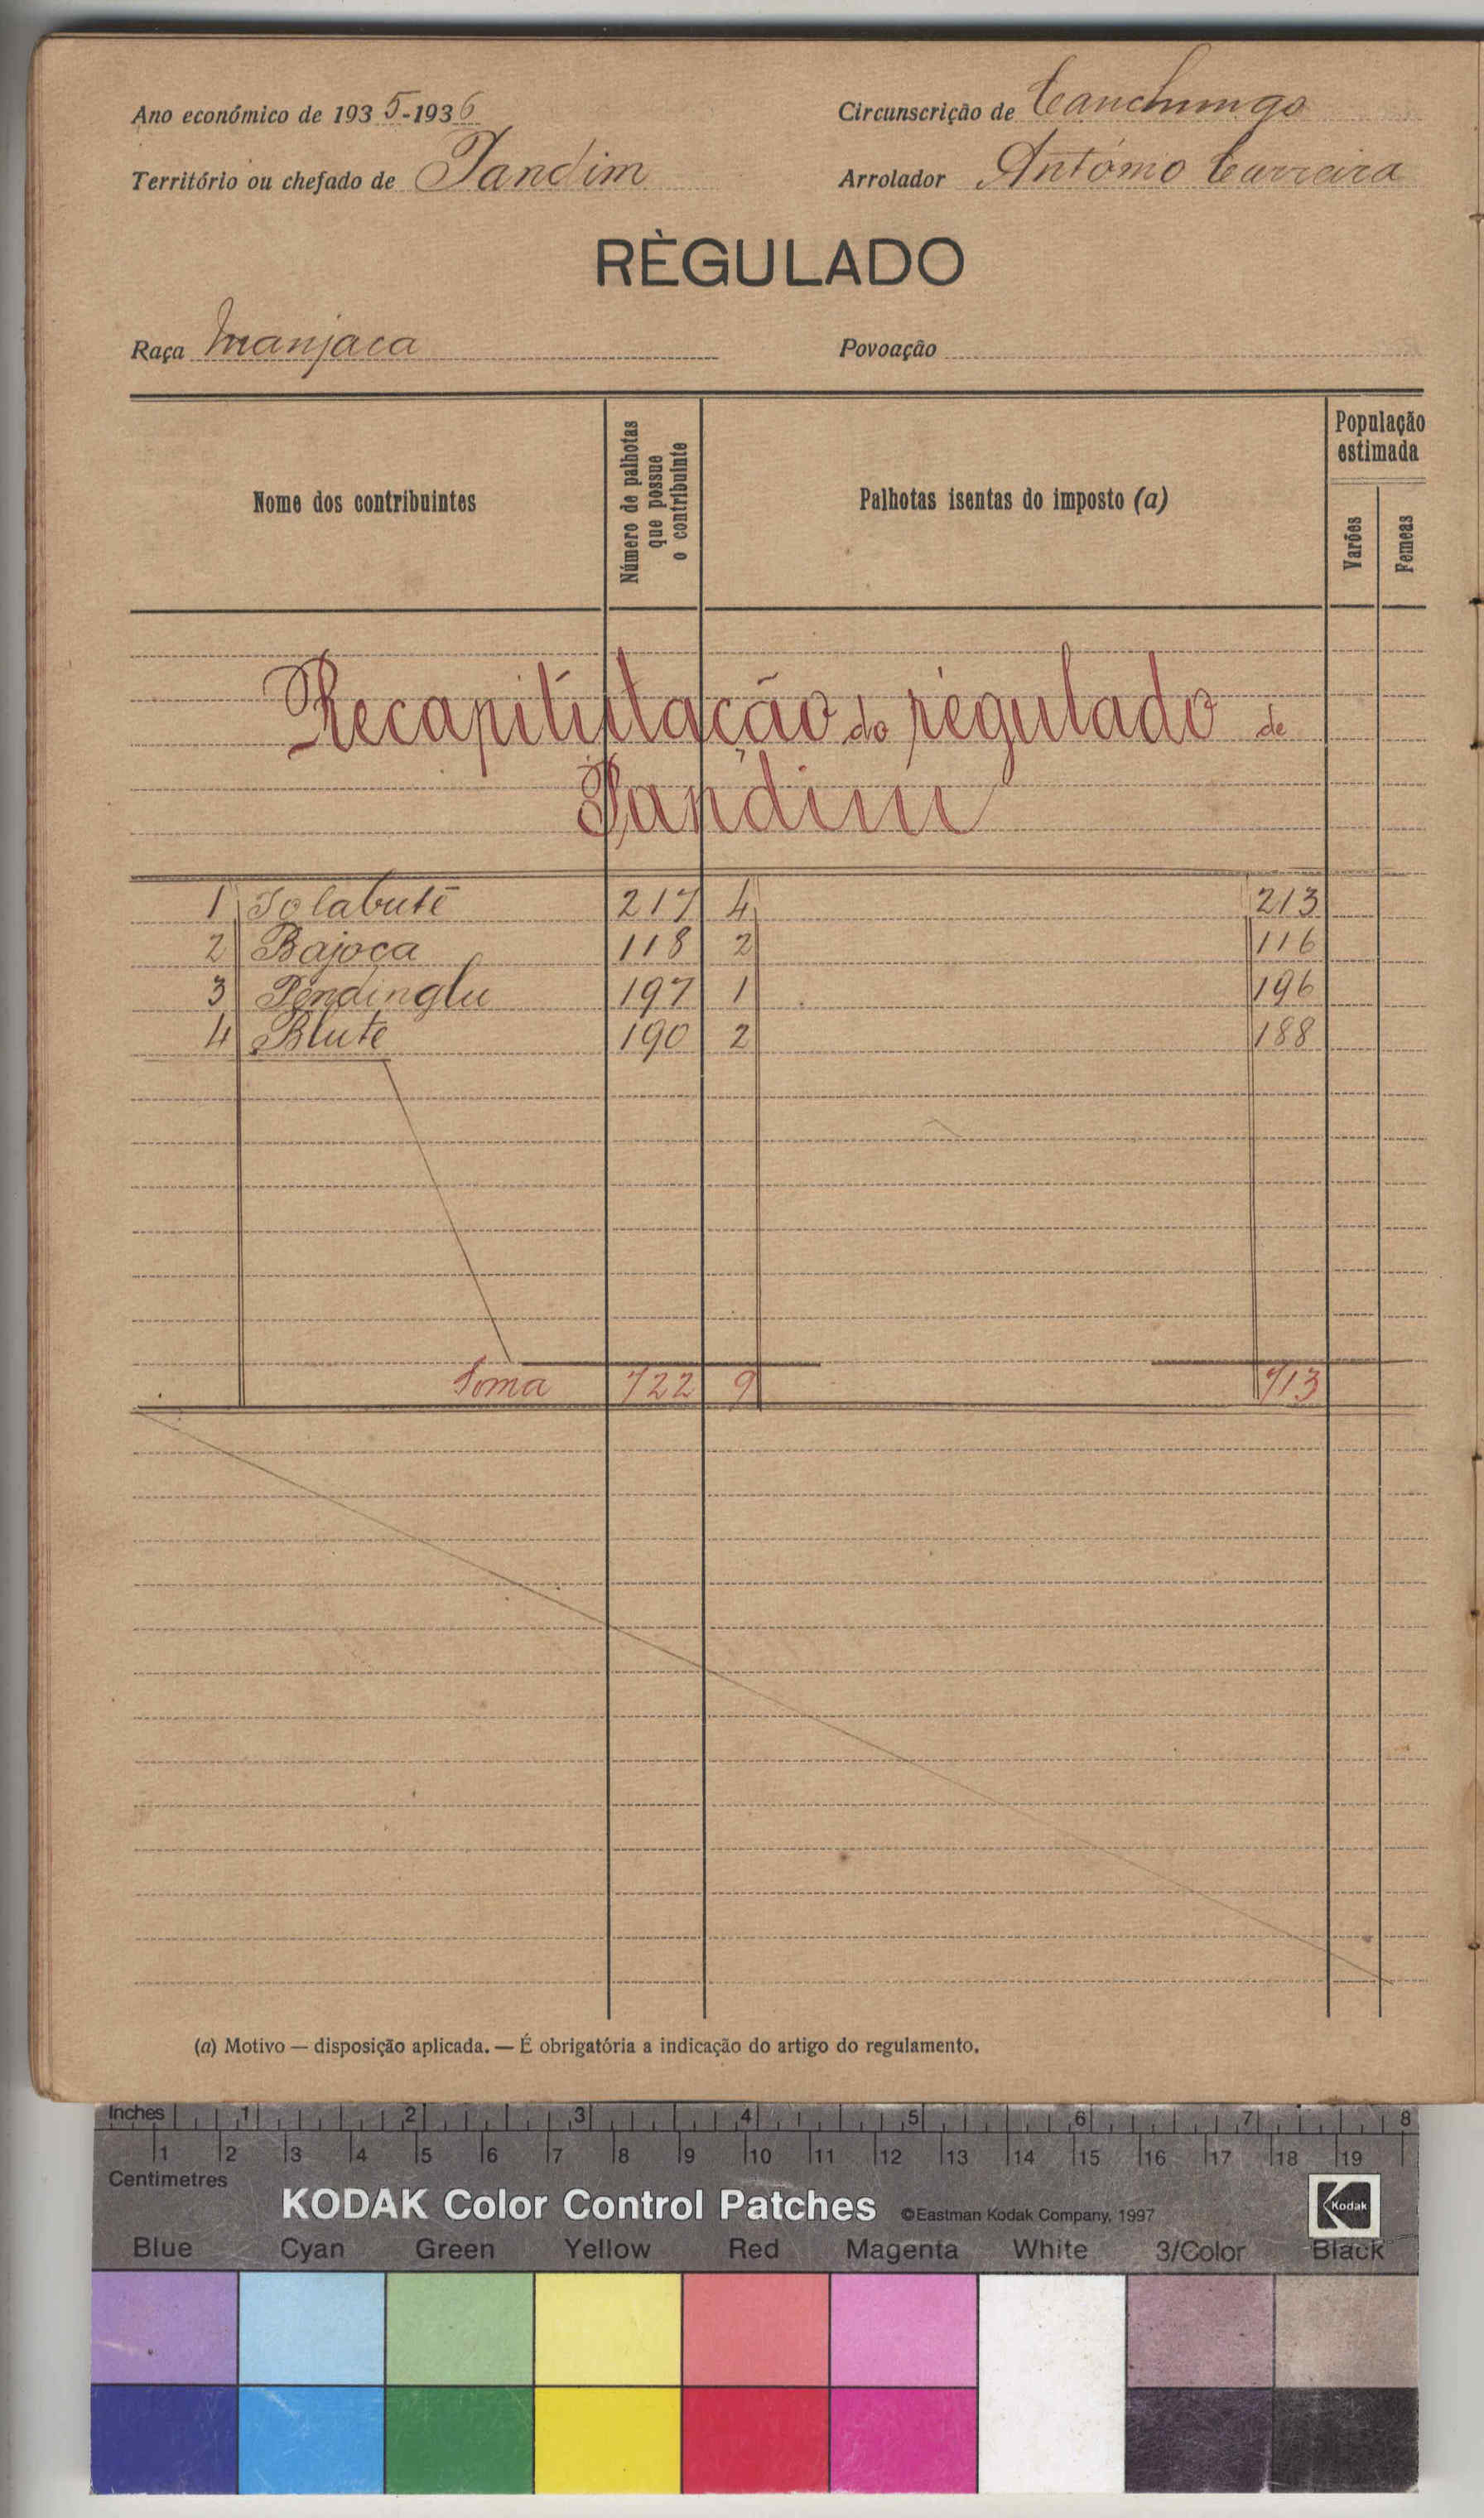 Ano económico de 1935-1936
Circunscrição de Canchungo
Território ou chefado de Pandim
Arrolador António Carreira
RÈGULADO
Raça Manjaca
Povoação
Nome dos contribuintes
Número de palhotas que possue o contribuinte
Palhotas isentas do imposto (a)
População estimada
Varões
Femeas
Recapitulação do régulado de
Pandim
1 217 4 213
2 Bajoca 118 2 116
3 Pendinglu 197 1 196
4 Blute 190 2 188
Soma 722 9 713
(a) Motivo — disposição aplicada. — É obrigatória a indicação do artigo do regulamento.
Inches 1 2 3 4 5 6 7 8
1 2 3 4 5 6 7 8 9 10 11 12 13 14 15 16 17 18 19
Centimetres
KODAK Color Control Patches ©Eastman Kodak Company, 1997 Kodak
Blue Cyan Green Yellow Red Magenta White 3/Color Black